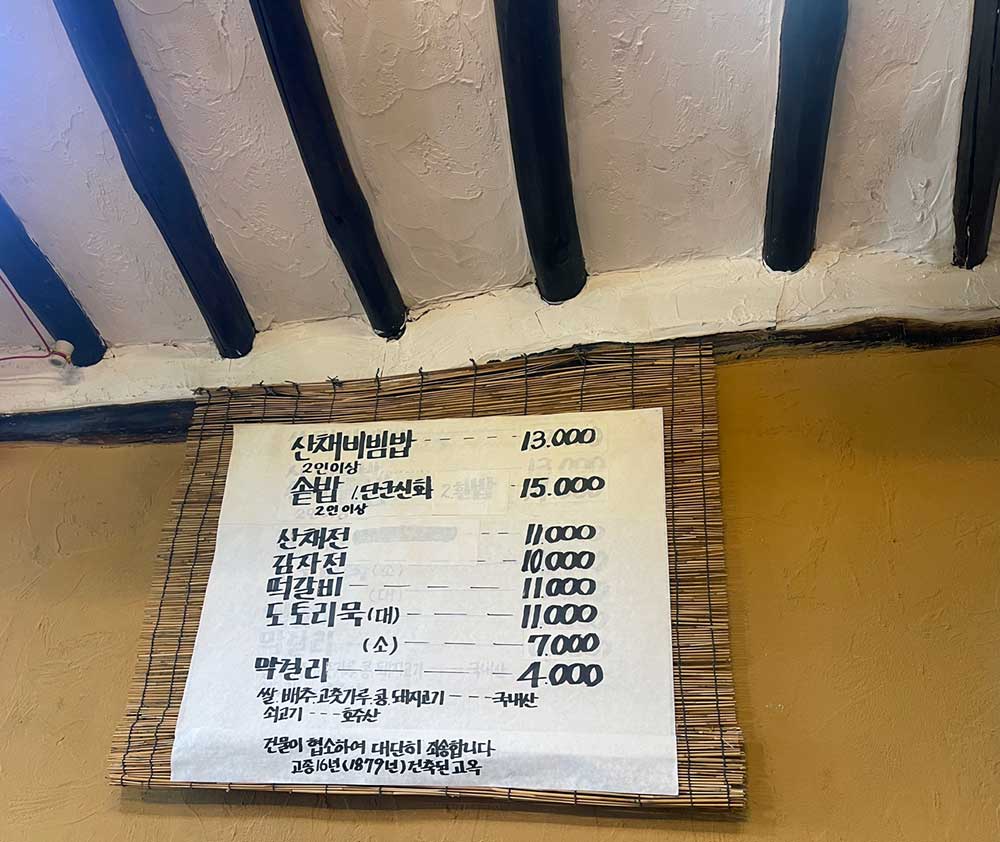 산채비빔밥 - - - - - 13.000
2인이상
솥밥 1.단군신화 - 15.000
2인이상
산채전 - - 11.000
감자전 - - 10.000
떡갈비 - - - - 11.000
도토리묵(대) - - - - 11.000
(소) - - - - 7.000
막걸리 - - - - - 4.000
쌀.배추.고춧가루.콩.돼지고기 - - - 국내산
쇠고기 - - - 호주산
건물이 협소하여 대단히 죄송합니다
고종16년(1879년)건축된고옥